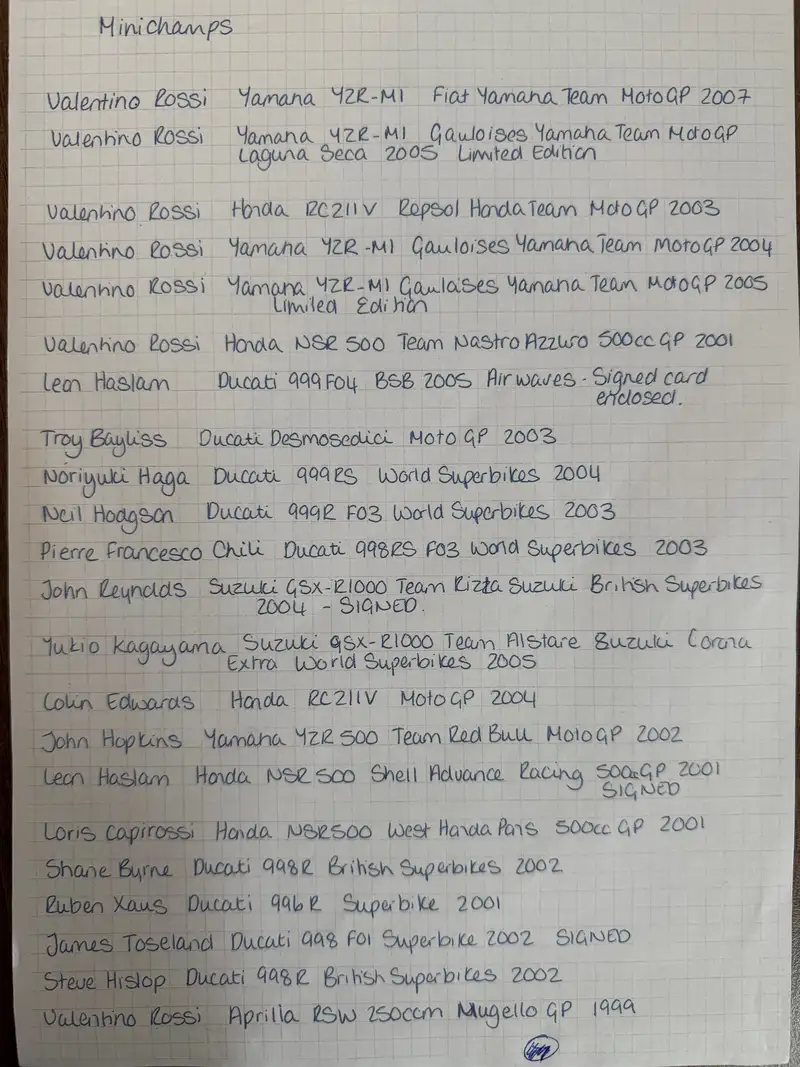 Minichamps
Valentino Rossi Yamaha YZR-M1 Fiat Yamaha Team MotoGP 2007
Valentino Rossi Yamaha YZR-M1 Gauloises Yamaha Team MotoGP
Laguna Seca 2005 Limited Edition
Valentino Rossi Honda RC211V Repsol Honda Team MotoGP 2003
Valentino Rossi Yamaha YZR-M1 Gauloises Yamaha Team MotoGP 2004
Valentino Rossi Yamaha YZR-M1 Gauloises Yamaha Team MotoGP 2005
Limited Edition
Valentino Rossi Honda NSR 500 Team Nastro Azzuro 500cc GP 2001
Leon Haslam Ducati 999 F04 BSB 2005 Airwaves - Signed card
enclosed.
Troy Bayliss Ducati Desmosedici Moto GP 2003
Noriyuki Haga Ducati 999RS World Superbikes 2004
Neil Hodgson Ducati 999R F03 World Superbikes 2003
Pierre Francesco Chili Ducati 998RS F03 World Superbikes 2003
John Reynolds Suzuki GSX-R1000 Team Rizla Suzuki British Superbikes
2004 - SIGNED.
Yukio Kagayama Suzuki GSX-R1000 Team Alstare Suzuki Corona
Extra World Superbikes 2005
Colin Edwards Honda RC211V MotoGP 2004
John Hopkins Yamaha YZR 500 Team Red Bull MotoGP 2002
Leon Haslam Honda NSR 500 Shell Advance Racing 500cc GP 2001
SIGNED
Loris Capirossi Honda NSR500 West Honda Pons 500cc GP 2001
Shane Byrne Ducati 998R British Superbikes 2002
Ruben Xaus Ducati 996R Superbike 2001
James Toseland Ducati 998 F01 Superbike 2002 SIGNED
Steve Hislop Ducati 998R British Superbikes 2002
Valentino Rossi Aprilla RSW 250ccm Mugello GP 1999